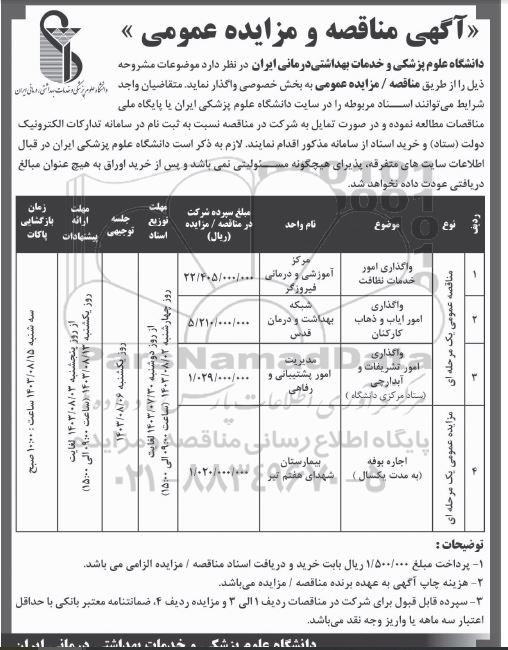 «آگهی مناقصه و مزایده عمومی»
دانشگاه علوم پزشکی و خدمات بهداشتی درمانی ایران
دانشگاه علوم پزشکی و خدمات بهداشتی‌درمانی ایران در نظر دارد موضوعات مشروحه
ذیل را از طریق مناقصه / مزایده عمومی به بخش خصوصی واگذار نماید. متقاضیان واجد
شرایط می‌توانند اسناد مربوطه را در سایت دانشگاه علوم پزشکی ایران یا پایگاه ملی
مناقصات مطالعه نموده و در صورت تمایل به شرکت در مناقصه نسبت به ثبت نام در سامانه تدارکات الکترونیک
دولت (ستاد) و خرید اسناد از سامانه مذکور اقدام نمایند. لازم به ذکر است دانشگاه علوم پزشکی ایران در قبال
اطلاعات سایت های متفرقه، پذیرای هیچگونه مسئولیتی نمی باشد و پس از خرید اوراق به هیچ عنوان مبالغ
دریافتی عودت داده نخواهد شد.
ردیف
نوع
موضوع
نام واحد
مبلغ سپرده شرکت
در مناقصه / مزایده
(ریال)
مهلت
توزیع
اسناد
جلسه
توجیهی
مهلت
ارائه
پیشنهادات
زمان
بازگشایی
پاکات
۱
مناقصه عمومی یک مرحله ای
واگذاری امور
خدمات نظافت
مرکز
آموزشی و درمانی
فیروزگر
۲۲/۴۰۵/۰۰۰/۰۰۰
۲
واگذاری
امور ایاب و ذهاب
کارکنان
شبکه
بهداشت و درمان
قدس
۵/۲۱۰/۰۰۰/۰۰۰
۳
واگذاری
امور تشریفات و
آبدارچی
(ستاد مرکزی دانشگاه)
مدیریت
امور پشتیبانی و
رفاهی
۱/۰۲۹/۰۰۰/۰۰۰
۴
مزایده عمومی یک مرحله ای
اجاره بوفه
(به مدت یکسال)
بیمارستان
شهدای هفتم تیر
۱/۰۲۰/۰۰۰/۰۰۰
از روز دوشنبه ۱۴۰۳/۰۷/۳۰ لغایت
روز چهارشنبه ۱۴۰۳/۰۸/۰۲ (ساعت ۰۹:۰۰ الی ۱۵:۰۰)
روز یکشنبه ۱۴۰۳/۰۸/۰۶
از روز پنجشنبه ۱۴۰۳/۰۸/۰۳ لغایت
روز یکشنبه ۱۴۰۳/۰۸/۱۳ (ساعت ۰۹:۰۰ الی ۱۵:۰۰)
سه شنبه ۱۴۰۳/۰۸/۱۵ ساعت : ۱۰:۰۰ صبح
ParsNamadData
پایگاه اطلاع رسانی مناقصه و مزایده
۰۲۱-۸۸۳۴۹۶۷۰-۵
توضیحات :
۱- پرداخت مبلغ ۱/۵۰۰/۰۰۰ ریال بابت خرید و دریافت اسناد مناقصه / مزایده الزامی می باشد.
۲- هزینه چاپ آگهی به عهده برنده مناقصه / مزایده می‌باشد.
۳- سپرده قابل قبول برای شرکت در مناقصات ردیف ۱ الی ۳ و مزایده ردیف ۴، ضمانتنامه معتبر بانکی با حداقل
اعتبار سه ماهه یا واریز وجه نقد می‌باشد.
دانشگاه علوم پزشکی و خدمات بهداشتی درمانی ایران